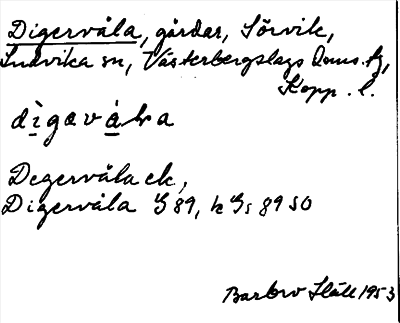 Digervåla, gårdar, Sörvik,
Ludvika sn, Västerbergslags Doms.fg,
Kopp. l.
dìgavàla
Degervåla ek,
Digervåla G 89, k Gs 89 SO
Barbro 1953